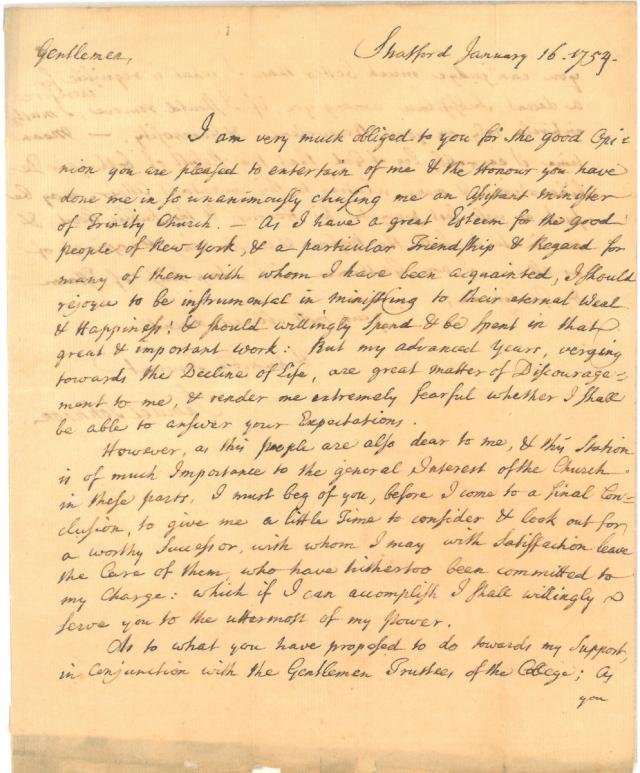 Gentlemen,
Stratford January 16. 1754.
I am very much obliged to you for the good Opi=
nion you are pleased to entertain of me & the Honour you have
done me in so unanimously chusing me an Assistant minister
of Trinity Church. — As I have a great Esteem for the good
people of New York, & a particular Friendship & Regard for
many of them with whom I have been acquainted, I should
rejoyce to be instrumental in ministring to their eternal Weal
& Happiness! & should willingly spend & be spent in that
great & important work: But my advanced Years, verging
towards the Decline of Life, are great matter of Discourage=
ment to me, & render me extremely fearful whether I shall
be able to answer your Expectations.
However, as this people are also dear to me, & this Station
is of much Importance to the general Interest of the Church
in these parts, I must beg of you, before I come to a final Con=
clusion, to give me a little Time to consider & look out for
a worthy Successor, with whom I may with Satisfaction leave
the Care of them, who have hithertoo been committed to
my Charge: which if I can accomplish I shall willingly
serve you to the uttermost of my power.
As to what you have proposed to do towards my Support,
in Conjunction with the Gentlemen Trustees of the College; As
you